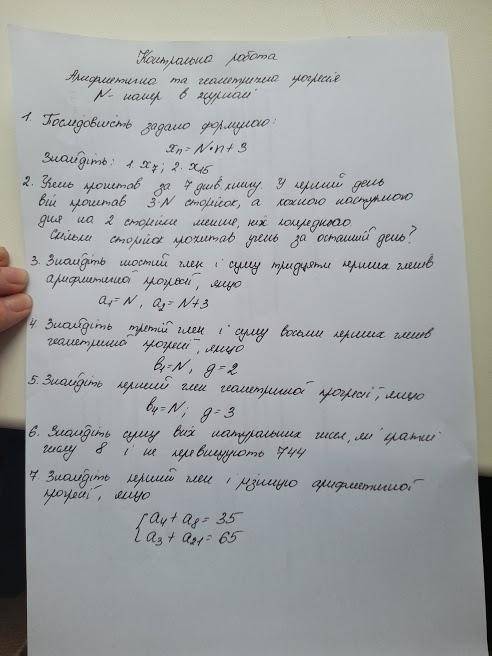 Контрольна робота
Арифметична та геометрична прогресія
N - номер в журналі
1. Послідовність задано формулою:
xₙ = N·n + 3
Знайдіть: 1. x₇; 2. x₁₅
2. Учень прочитав за 7 днів книгу. У перший день
він прочитав 3·N сторінок, а кожного наступного
дня на 2 сторінки менше, ніж попереднього.
Скільки сторінок прочитав учень за останній день?
3. Знайдіть шостий член і суму тридцяти перших членів
арифметичної прогресії, якщо
a₁ = N, a₂ = N+3
4. Знайдіть третій член і суму восьми перших членів
геометричної прогресії, якщо
b₁ = N, g = 2
5. Знайдіть перший член геометричної прогресії, якщо
b₄ = N; g = 3
6. Знайдіть суму всіх натуральних чисел, які кратні
числу 8 і не перевищують 744
7. Знайдіть перший член і різницю арифметичної
прогресії, якщо
{a₄ + a₈ = 35
{a₃ + a₂₁ = 65